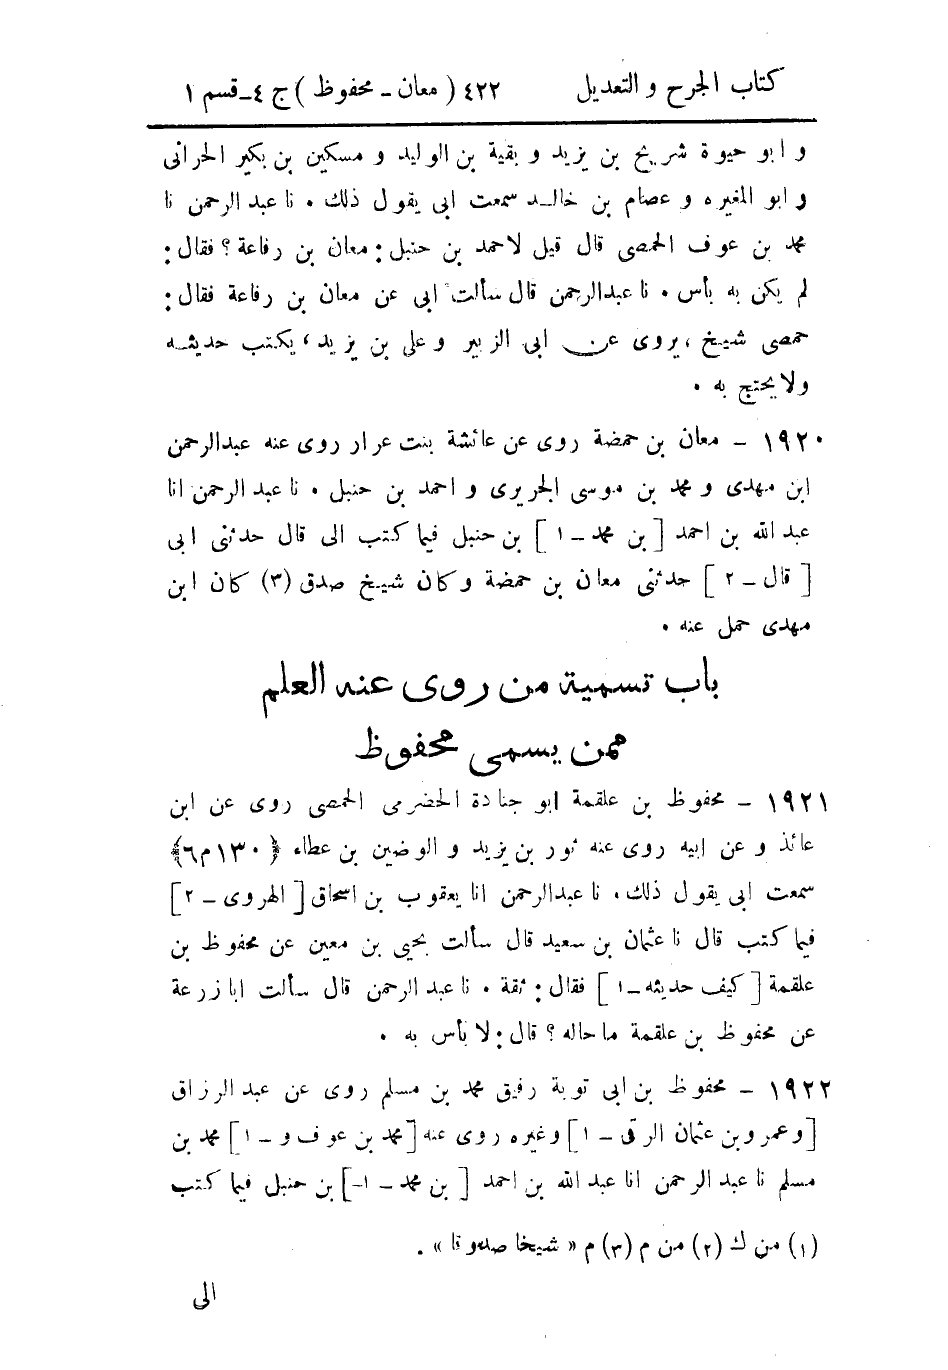 كتاب الجرح و التعديل ٤٢٢ ( معان ـ محفوظ ) ج ٤ـ قسم ١
و ابو حيوة شريح بن يزيد و بقية بن الوليد و مسكين بن بكير الحرانى
و ابو المغيره و عصام بن خالد سمعت ابى يقول ذلك ٠ نا عبد الرحمن نا
محمد بن عوف الحمصى قال قيل لاحمد بن حنبل : معان بن رفاعة ؟ فقال :
لم يكن به بأس ٠ نا عبدالرحمن قال سألت ابى عن معان بن رفاعة فقال :
حمصى شيخ ، يروى عن ابى الزبير و على بن يزيد ، يكتب حديثه
ولا يحتج به ٠
١٩٢٠ ـ معان بن حمضة روى عن عائشة بنت عرار روى عنه عبدالرحمن
ابن مهدى و محمد بن موسى الحريرى و احمد بن حنبل ٠ نا عبد الرحمن انا
عبد الله بن احمد [ بن محمد ـ ١ ] بن حنبل فيما كتب الى قال حدثنى ابى
[ قال ـ ٢ ] حدثنى معان بن حمضة وكان شيخ صدق (٣) كان ابن
مهدى حمل عنه ٠
باب تسمية من روى عنه العلم
ممن يسمى محفوظ
١٩٢١ ـ محفوظ بن علقمة ابو جنادة الحضرمى الحمصى روى عن ابن
عائذ و عن ابيه روى عنه ثور بن يزيد و الوضين بن عطاء ﴿ ١٣٠ م ٦ ﴾
سمعت ابى يقول ذلك ٠ نا عبدالرحمن انا يعقوب بن اسحاق [ الهروى ـ ٢ ]
فيما كتب قال نا عثمان بن سعيد قال سألت يحيى بن معين عن محفوظ بن
علقمة [ كيف حديثه ـ ١ ] فقال : ثقة ٠ نا عبد الرحمن قال سألت ابا زرعة
عن محفوظ بن علقمة ما حاله ؟ قال : لا بأس به ٠
١٩٢٢ ـ محفوظ بن ابى توبة رفيق محمد بن مسلم روى عن عبد الرزاق
[ و عمرو بن عثمان الرقى ـ ١ ] وغيره روى عنه [ محمد بن عوف و ـ ١ ] محمد بن
مسلم نا عبد الرحمن انا عبد الله بن احمد [ بن محمد ـ ١ ] بن حنبل فيما كتب
(١) من ك (٢) من م (٣) م « شيخا صدوقا » .
الى